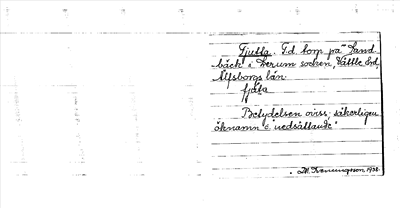 Tjutta. F.d. torp på Sand-
bäck i Lerum socken, Vättle hd,
Älfsborgs län.
fjäta
Betydelsen oviss; säkerligen
öknamn o. nedsättande.
1938